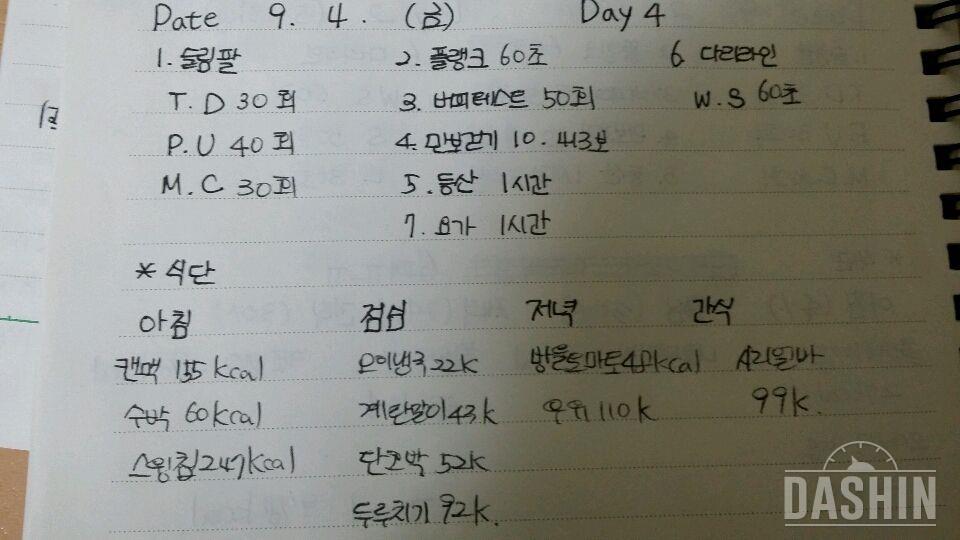 Date 9. 4. (금) Day 4
1. 슬림팔 2. 플랭크 60초 6. 다리라인
T. D 30회 3. 버피테스트 50회 W. S 60초
P. U 40회 4. 만보걷기 10. 443보
M. C 30회 5. 등산 1시간
7. 요가 1시간
* 식단
아침 점심 저녁 간식
캔맥 155 kcal 오이냉국 22k 방울토마토 kcal 시리얼바
수박 60kcal 계란말이 43k 우유 110k 99k.
스윙칩 247kcal 단호박 52k
두루치기 92k.
DASHIN